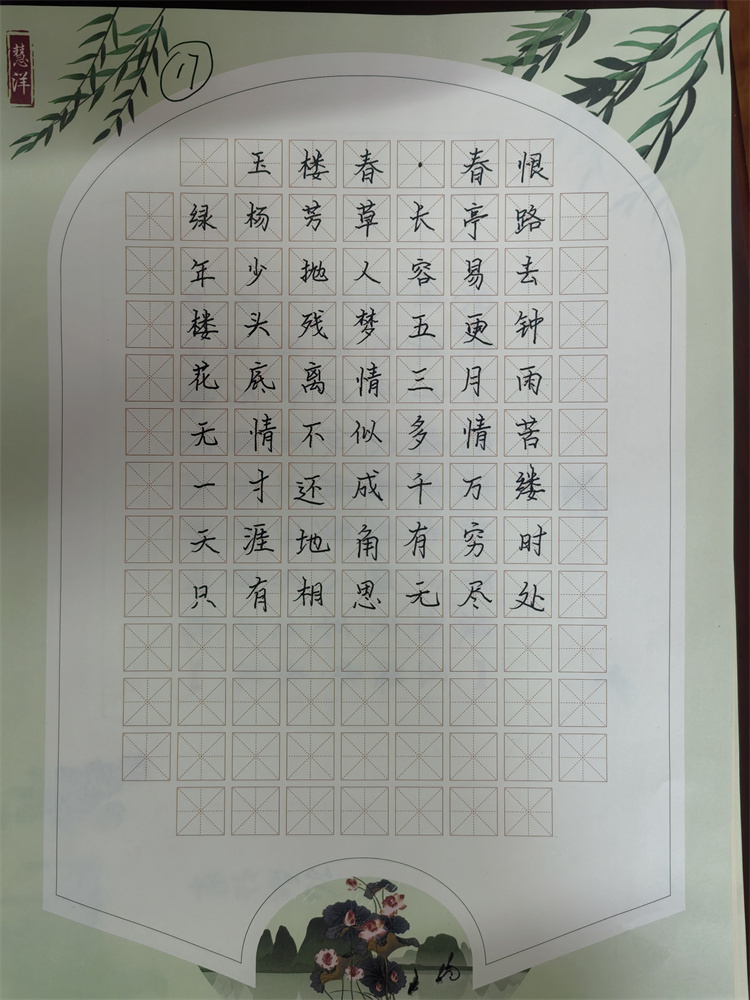 慧洋
17
玉楼春·春恨
绿杨芳草长亭路
年少抛人容易去
楼头残梦五更钟
花底离情三月雨
无情不似多情苦
一寸还成千万缕
天涯地角有穷时
只有相思无尽处